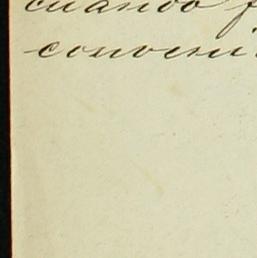 cuando f
conveni